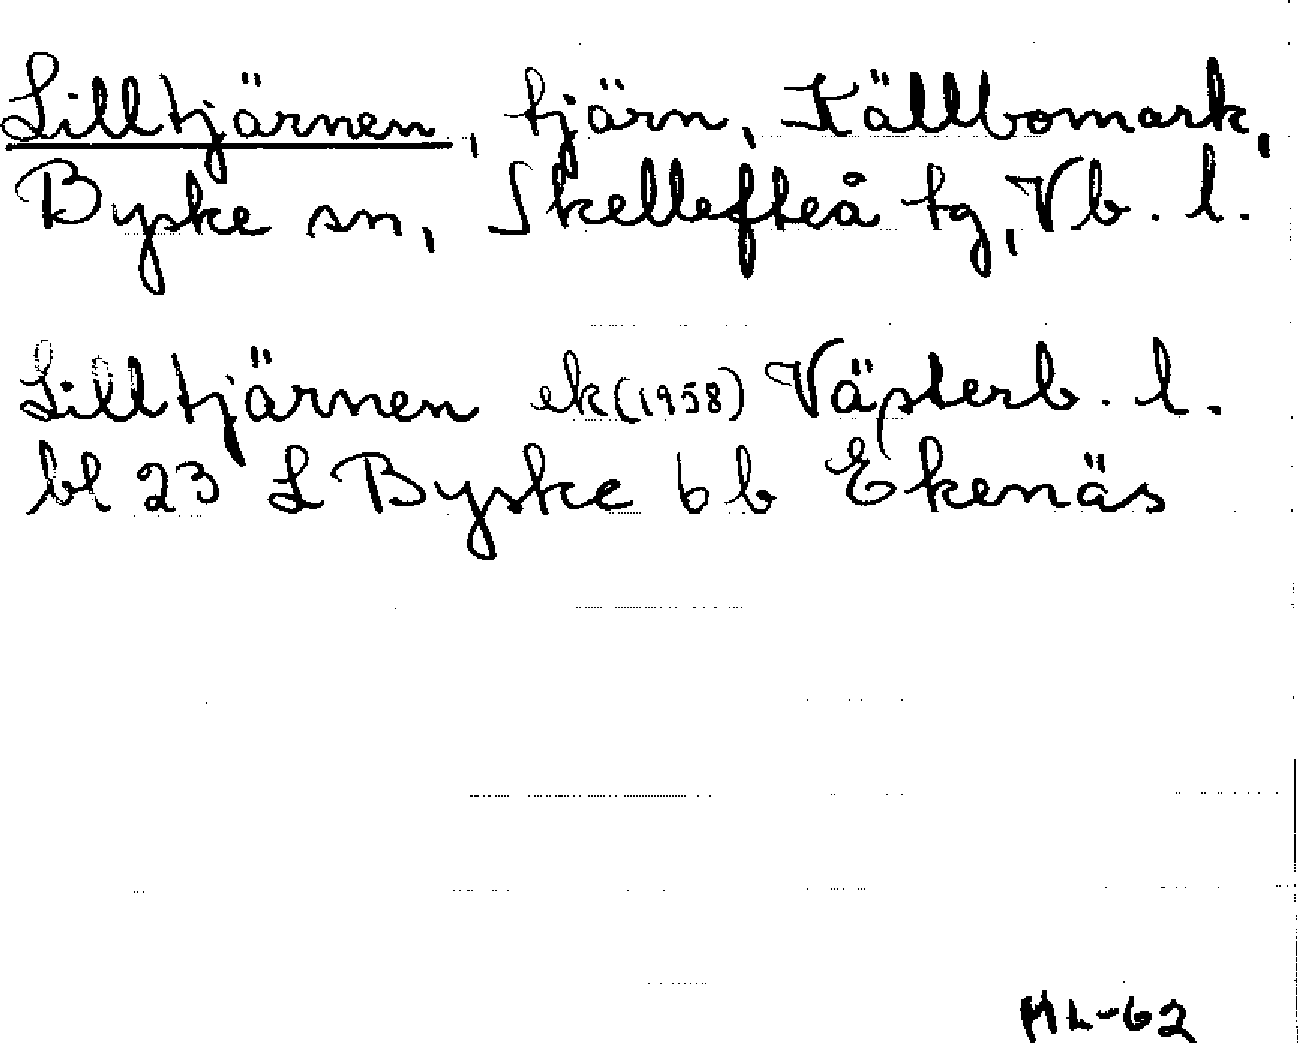 Lilltjärnen, tjärn, Källbomark,
Byske sn, Skellefteå tg, Vb. l.
Lilltjärnen ek (1958) Västerb. l.
bl 23 L Byske 6 b Ekenäs
ML-62